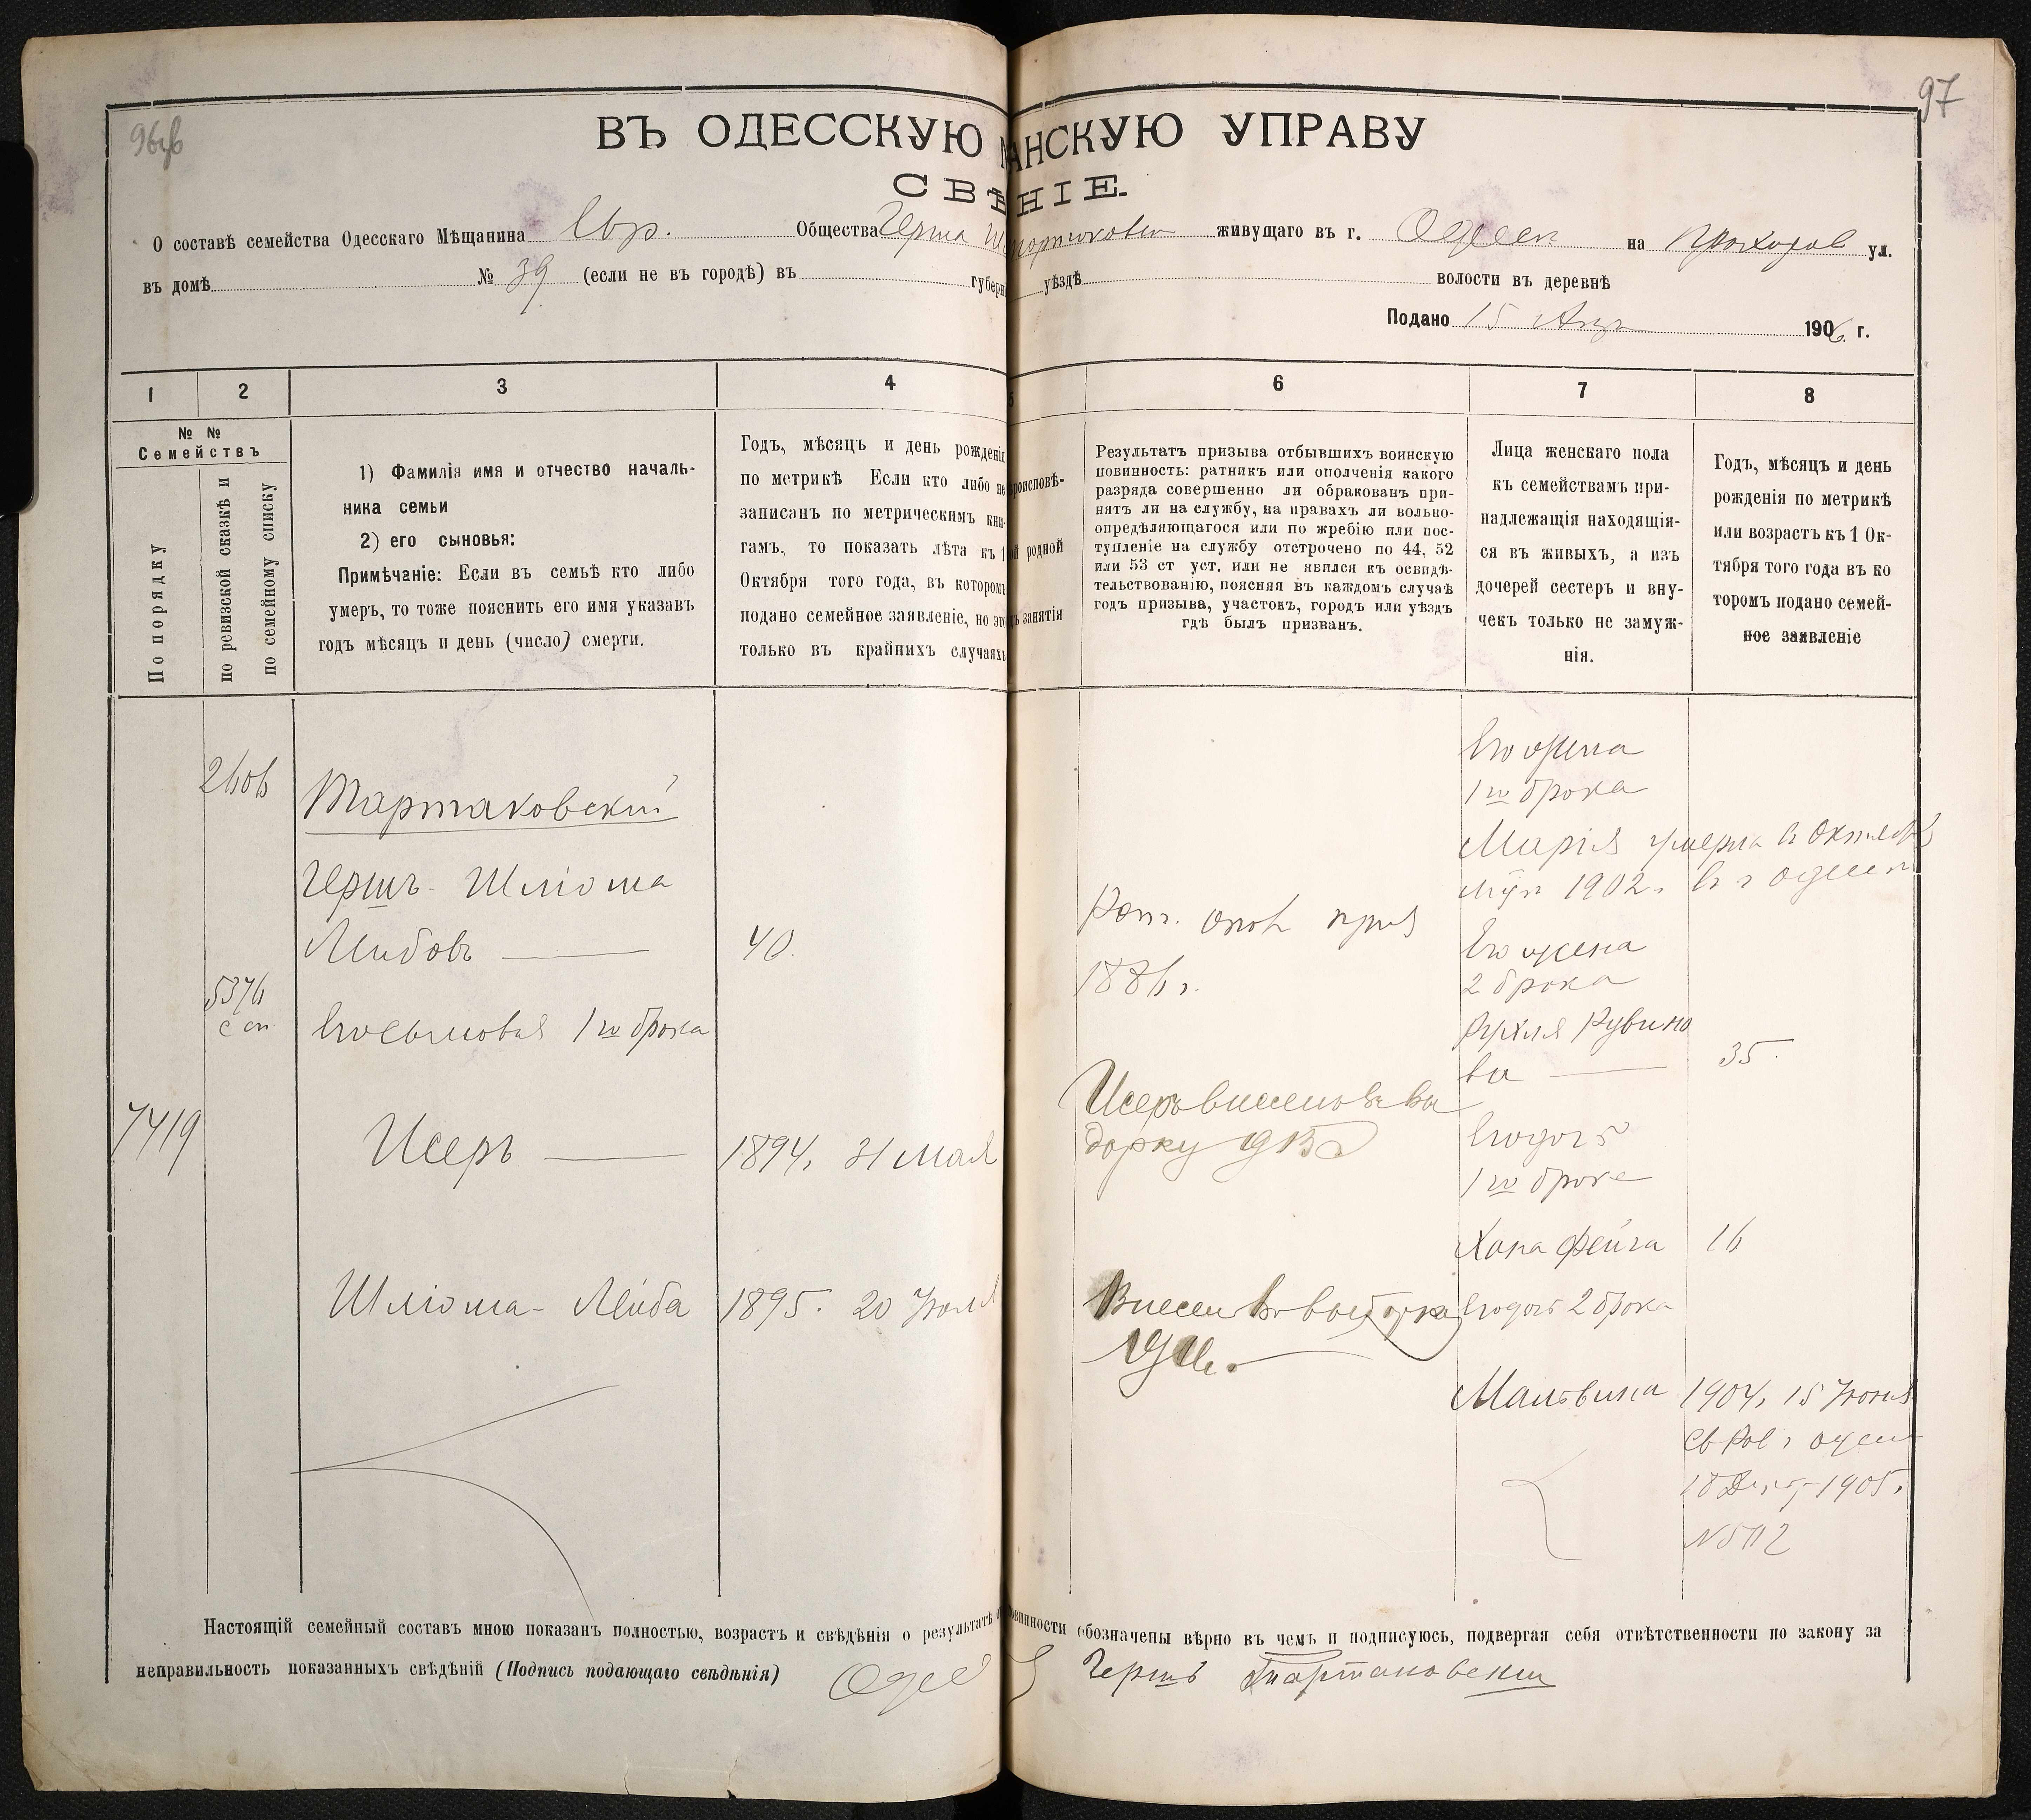 96об
97
ВЪ ОДЕССКУЮ АНСКУЮ УПРАВУ
СВѢ НІЕ.
О составѣ семейства Одесскаго Мѣщанина Евр. Общества Герша живущаго въ г. Одессе на Прохоров ул.
въ домѣ № 39 (если не въ городѣ) въ губерні уѣздѣ волости въ деревнѣ
Подано 15 1906 г.
1 2 3 4 5 6 7 8
№ №
Семействъ
По порядку
по ревизской сказкѣ и
по семейному списку
1) Фамилія имя и отчество началь-
ника семьи
2) его сыновья:
Примѣчаніе: Если въ семьѣ кто либо
умеръ, то тоже пояснить его имя указавъ
годъ мѣсяцъ и день (число) смерти.
Годъ, мѣсяцъ и день рожденія
по метрикѣ Если кто либо не
записанъ по метрическимъ кни-
гамъ, то показать лѣта къ 1
Октября того года, въ которомъ
подано семейное заявленіе, но это
только въ крайнихъ случаяхъ
роисповѣ-
ой родной
занятія
Результатъ призыва отбывшихъ воинскую
повинность: ратникъ или ополченія какого
разряда совершенно ли обракованъ при-
нятъ ли на службу, на правахъ ли вольно-
опредѣляющагося или по жребію или пос-
тупленіе на службу отстрочено по 44, 52
или 53 ст уст. или не явился къ освидѣ-
тельствованію, поясняя въ каждомъ случаѣ
годъ призыва, участокъ, городъ или уѣздъ
гдѣ былъ призванъ.
Лица женскаго пола
къ семействамъ при-
надлежащія находящія-
ся въ живыхъ, а изъ
дочерей сестеръ и вну-
чекъ только не замуж-
нія.
Годъ, мѣсяцъ и день
рожденія по метрикѣ
или возрастъ къ 1 Ок-
тября того года въ ко
торомъ подано семей-
ное заявленіе
2606
Тартаковскій
Гершъ - Шліома
Лейбовъ 40.
5376
с сп
Его сыновья 1го брака
7419
Исеръ 1894, 31 мая
Шліома - Лейба 1895. 20
Рат. опол приз
1886 г.
Исеръ внесенъ въ вы
борку 1915
Внесен в выборку
191
Его жена
1го брака
Марія умерла в Октябрѣ
1902 г. в г Одессе
Его жена
2 брака
Рухля Рувино
ва 35.
Его дочь
1го брака
Хана Фейга 16
Его дочь 2 брака
Мальвина 1904, 15 Июня
18 1905,
N 5112
Настоящій семейный составъ мною показанъ полностью, возрастъ и свѣдѣнія о результатѣ о винности обозначены вѣрно въ чемъ и подписуюсь, подвергая себя отвѣтственности по закону за
неправильность показанныхъ свѣдѣній (Подпись подающаго свѣдѣнія) Гершъ Тартаковский